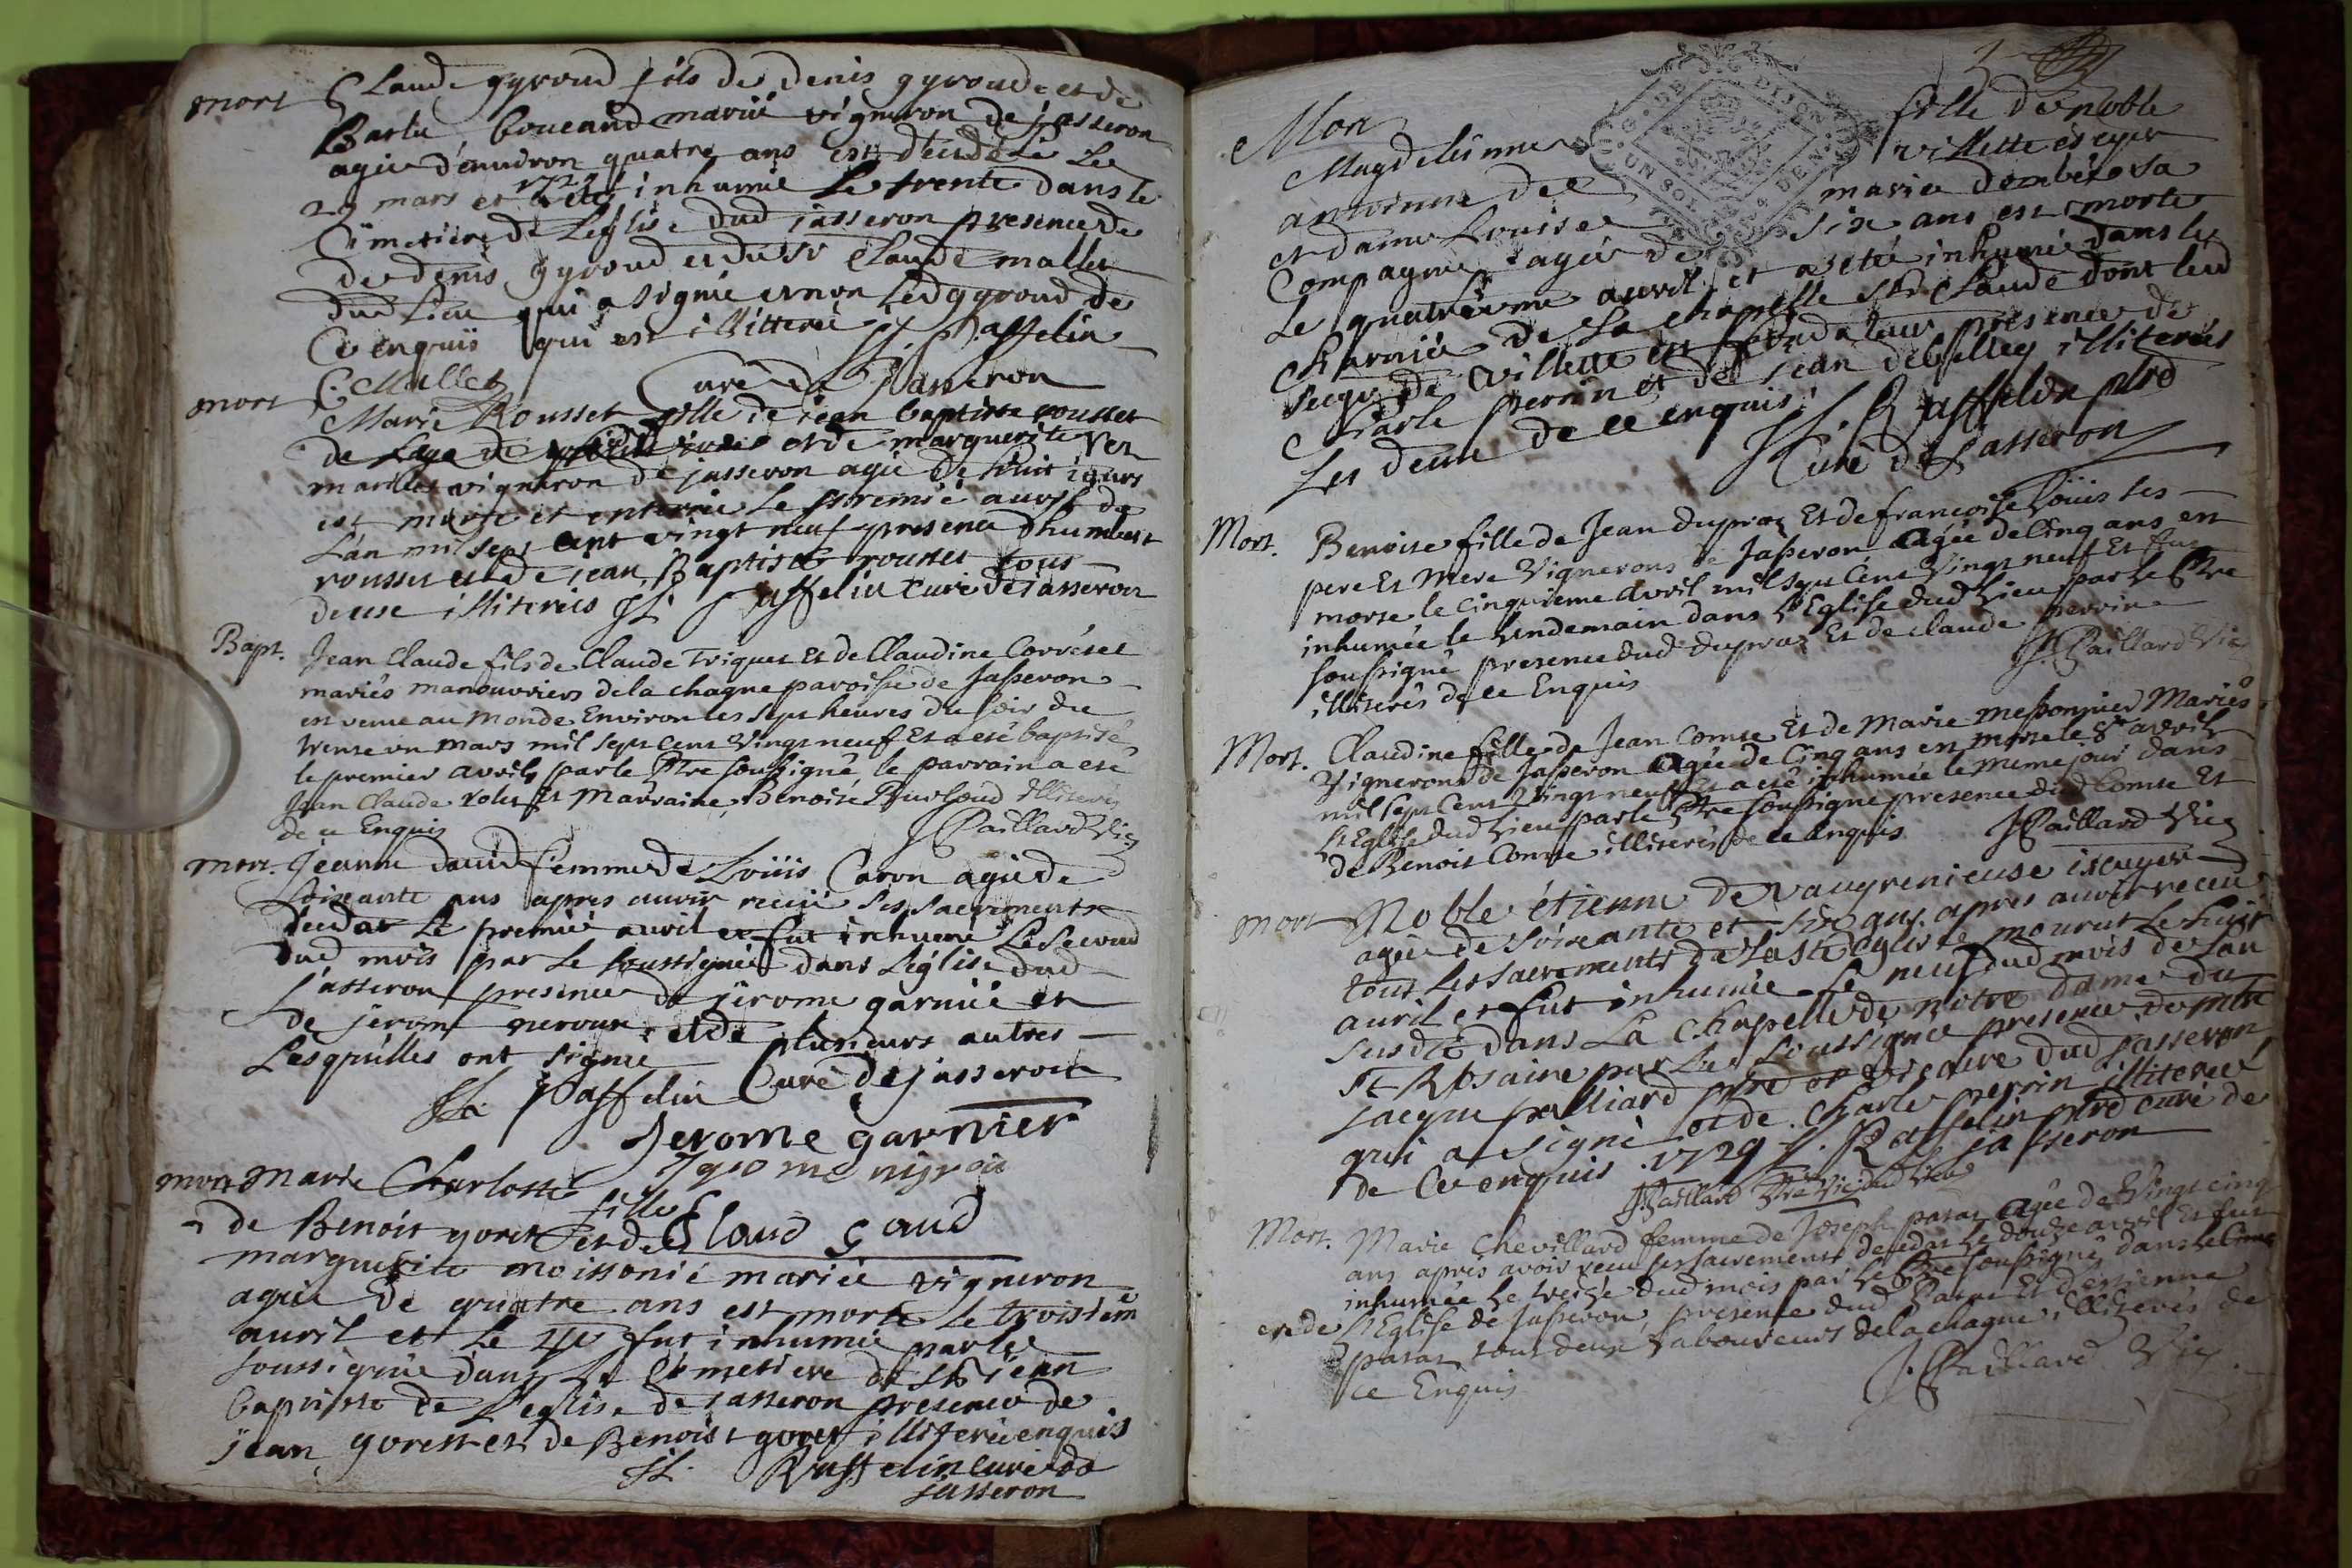 mort Claude gyroud fils de denis gyroud et de
Barbe boucand marié vigneron de jasseron
agée d'enuiron quatre ans est décédé le
29 mars et 1729 a été inhumé Le trente dans le
Cimetiere de Leglise dud jasseron presence de
de denis gyroud et du sr Claude mallet
dud Lieu qui a signé et non led gyroud de
Ce enquis qui est illitteré J. L. Passelin
C. Mallet Curé de Jasseron
mort Marie Rousset fille de jean baptiste rousset
et de marguerite
vigneron de jasseron agée de huit jours
est morte et enterrée le premié auril de
L'an mil sept cent vingt neuf presence d'humbert
rousset et de jean Baptiste rousset tous
deux illiterés J L Passelin curé de jasseron
Bapt. Jean Claude fils de Claude Triquet Et de Claudine Corréset
mariés manouvriers de la chagne paroisse de Jasseron
est venu au monde Environ les sept heures du soir du
trente un mars mil sept cent vingt neuf Et a eté baptisé
le premier avril par le Ptre soussigné, le parrain a eté
Jean Claude rolet Et Marraine, Benoite illiterés
de ce Enquis J Paillard Vic
mort. Jeanne dauid femme de Loüis Caron agée de
soixante ans apres auoir reçu ses sacrements
deceda le premié auril et fut inhumé Le second
dud mois par le soussigné dans Leglise dud
Jasseron presence de jerome garnié et
de jerome et de plusieurs autres
Lesquelles ont signé
J L. Passelin Curé de jasseron
Jerome garnier
mort Marie Charlotte fille
de Benoit goret et de Claud gaud
marguerite moissonié mariée vigneron
agée de quatre ans est morte le troisiem
auril et le 4e fut inhumée par le
soussigné dans le Cimetiere de St jean
baptiste de Leglise de jasseron presence de
jean goret et de Benoist goret illiteré enquis
J L. Passelin curé de
jasseron
Mort
Magdeleinne fille de noble
antoinne de villette escyer
et dame Louise marie dombérosa
Compagne agée de six ans est morte
Le quatrieme auril et a été inhumée dans le
charnié de La chapelle St Claude dont led
seigr de Villette est fondateur presence de
Charle perrin et de jean illiterés
Les deux de ce enquis J L. Passelin ptre
Curé de Jasseron
Mort. Benoite fille de Jean dupraz Et de francoise Loüis ses
pere Et mere Vignerons de Jasseron agée de Cinq ans est
morte le cinquieme avril mil sept Cent Vingt neuf Et fut
inhumée le Lendemain dans L'Eglise dud Lieu par le Ptre
soussigné presence dud dupraz Et de claude perrin
illiterés de ce Enquis J. Paillard Vic
Mort. Claudine fille de Jean Comte Et de Marie messonnier Mariés
Vignerons de Jasseron agée de Cinq ans est morte le 8e avril
mil sept Cent Vingt neuf Et a eté inhumée le meme jour dans
L'Eglise dud Lieu par le Ptre soussigné presence dud Comte Et
de Benoit Comte illiterés de ce Enquis J Paillard Vic
mort Noble étienne de Vaugrenieuse escuyer
agée de soixante et six ans apres auoir receu
tous les sacrements de La Ste eglise mourut le huit
auril et fut inhumée le neuf dud mois de Lan
susdit dans La Chapelle de notre dame du
St Rosaire par le soussigné presence de mtre
jacque palliard ptre et vicaire dud Jasseron
qui a signé et de Charle perrin illiteré
de Ce enquis. 1729 J. L. Passelin ptre curé de
jasseron
J. Paillard Ptre Vic dud Lieu
Mort. Marie Chevillard femme de Joseph parat agée de Vingt cinq
ans apres avoir receu ses sacrements deceda Le douze avril Et fut
inhumée Le treize dud mois par le Ptre soussigné dans le Cime
tiere de L'Eglise de Jasseron, presence dud Parat Et d'estienne
parat tout deux Laboureurs de la chagne illiterés de
ce Enquis J. Paillard Vic.